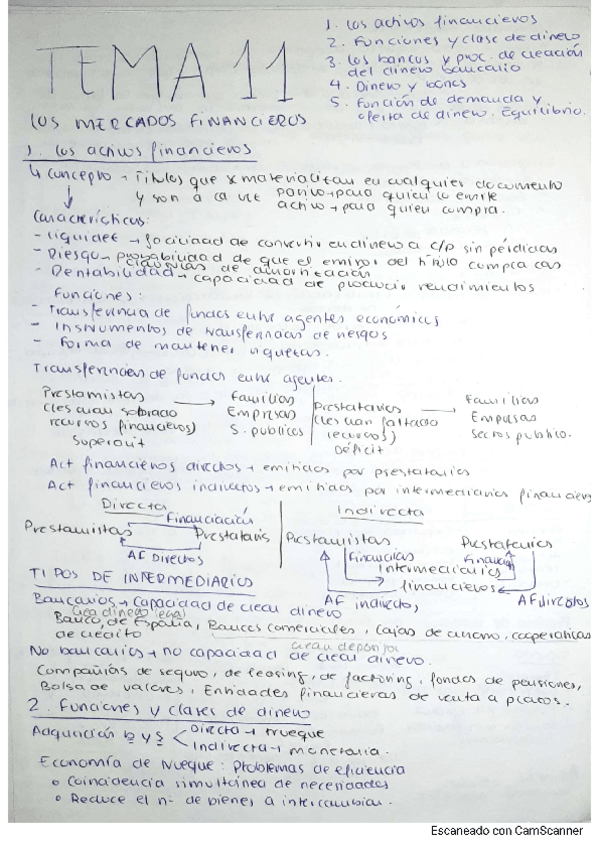 TEMA 11
LOS MERCADOS FINANCIEROS
1. Los activos financieros
2. Funciones y clase de dinero
3. Los bancos y proc. de creación
del dinero bancario
4. Dinero y bancos
5. Función de demanda y
oferta de dinero. Equilibrio.
1. Los activos financieros
↳ Concepto → Títulos que se materializan en cualquier documento
y son a la vez pasivo → para quien lo emite
activo → para quien compra.
Características:
- Liquidez → facilidad de convertir en dinero a c/p sin pérdidas
- Riesgo → probabilidad de que el emisor del título cumpla las
cláusulas de amortización
- Rentabilidad → capacidad de producir rendimientos
Funciones:
- Transferencia de fondos entre agentes económicos
- Instrumentos de transferencias de riesgos
- Forma de mantener riquezas.
Transferencias de fondos entre agentes.
Prestamistas → Familias
(les han sobrado Empresas
recursos financieros) S. publicos
Superavit
Prestatarios → Familias
(les han faltado Empresas
recursos) público.
Déficit
Act financieros directos → emitidos por prestatarios
Act financieros indirectos → emitidos por intermediarios financieros
Directa
Financiación
Prestamistas Prestatarios
AF Directos
Indirecta
Prestamistas Prestatarios
Intermediarios
financieros
AF indirectos AF directos
TIPOS DE INTERMEDIARIOS
Bancarios → Capacidad de crear dinero
Crea dinero legal
Banco de España, Bancos comerciales, Cajas de ahorro, cooperativas
de crédito
crean deponjos
No bancarios → no capacidad de crear dinero.
Compañías de seguro, de leasing, de factoring, fondos de pensiones,
Bolsa de valores, Entidades financieras de venta a plazos.
2. Funciones y clases de dinero
Adquisición b y s < Directa → trueque
Indirecta → monetaria.
Economía de trueque: Problemas de eficiencia
• Coincidencia simultánea de necesidades
• Reduce el nº de bienes a intercambiar.
Escaneado con CamScanner